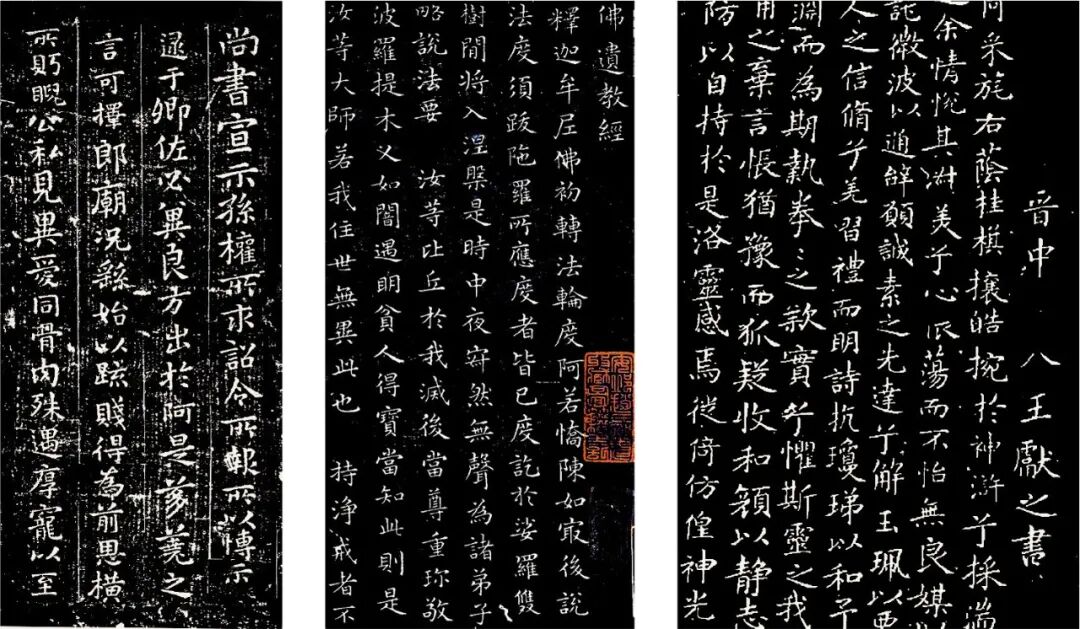 尚書宣示孫權所求詔令所報所以博示
逮于卿佐必冀良方出於阿是芻蕘之
言可擇郎廟況繇始以疏賤得為前恩橫
所眄睨公私見異愛同骨肉殊遇厚寵以至
佛遺教經
釋迦牟尼佛初轉法輪度阿若憍陳如冣後說
法度須跋陁羅所應度者皆已度訖於娑羅雙
樹間將入涅槃是時中夜寂然無聲為諸弟子
略說法要 汝等比丘於我滅後當尊重珎敬
波羅提木叉如闇遇明貧人得寶當知此則是
汝等大師若我住世無異此也 持淨戒者不
晉中 八王獻之書
采旄右蔭桂棋攘皓捥於神滸兮採湍
余情悅其淑美兮心振蕩而不怡無良媒以
託微波以通辭願誠素之先達兮解玉珮以要
人之信脩兮羌習禮而明詩抗瓊珶以和予
淵而為期執拳々之款實兮懼斯靈之我
之棄言悵猶豫而狐疑收和顏以静志
防以自持於是洛靈感焉徙倚仿偟神光